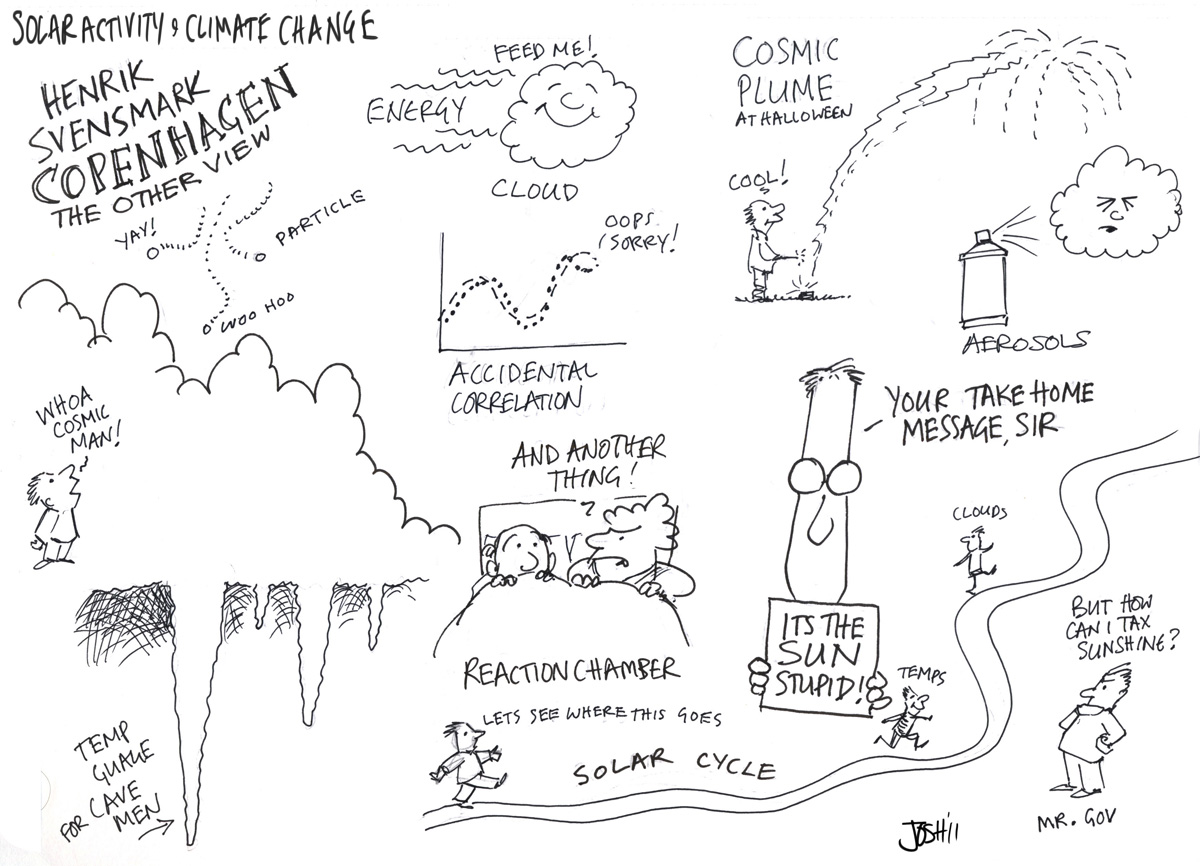 SOLAR ACTIVITY & CLIMATE CHANGE
HENRIK
SVENSMARK
COPENHAGEN
THE OTHER VIEW
YAY!
PARTICLE
WOO HOO
FEED ME!
ENERGY
CLOUD
COSMIC
PLUME
AT HALLOWEEN
COOL!
AEROSOLS
OOPS
SORRY!
ACCIDENTAL
CORRELATION
WHOA
COSMIC
MAN!
AND ANOTHER
THING!
REACTION CHAMBER
YOUR TAKE HOME
MESSAGE, SIR
ITS THE
SUN
STUPID!
CLOUDS
TEMPS
BUT HOW
CAN I TAX
SUNSHINE?
MR. GOV
LETS SEE WHERE THIS GOES
SOLAR CYCLE
TEMP
GUAGE
FOR CAVE
MEN
JOSH'11